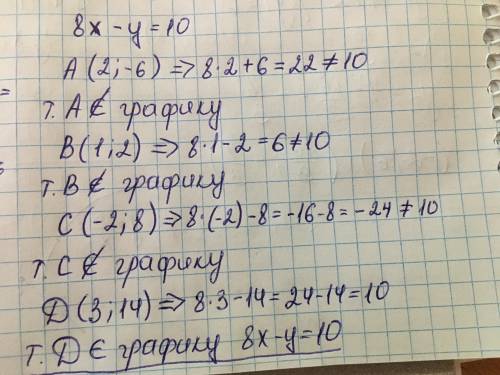 8x - y = 10
A (2; -6) => 8·2+6=22≠10
т. A ∉ графику
B (1; 2) => 8·1-2=6≠10
т. B ∉ графику
C (-2; 8) => 8·(-2)-8=-16-8=-24≠10
т. C ∉ графику
Д (3; 14) => 8·3-14=24-14=10
т. Д ∈ графику 8x-y=10